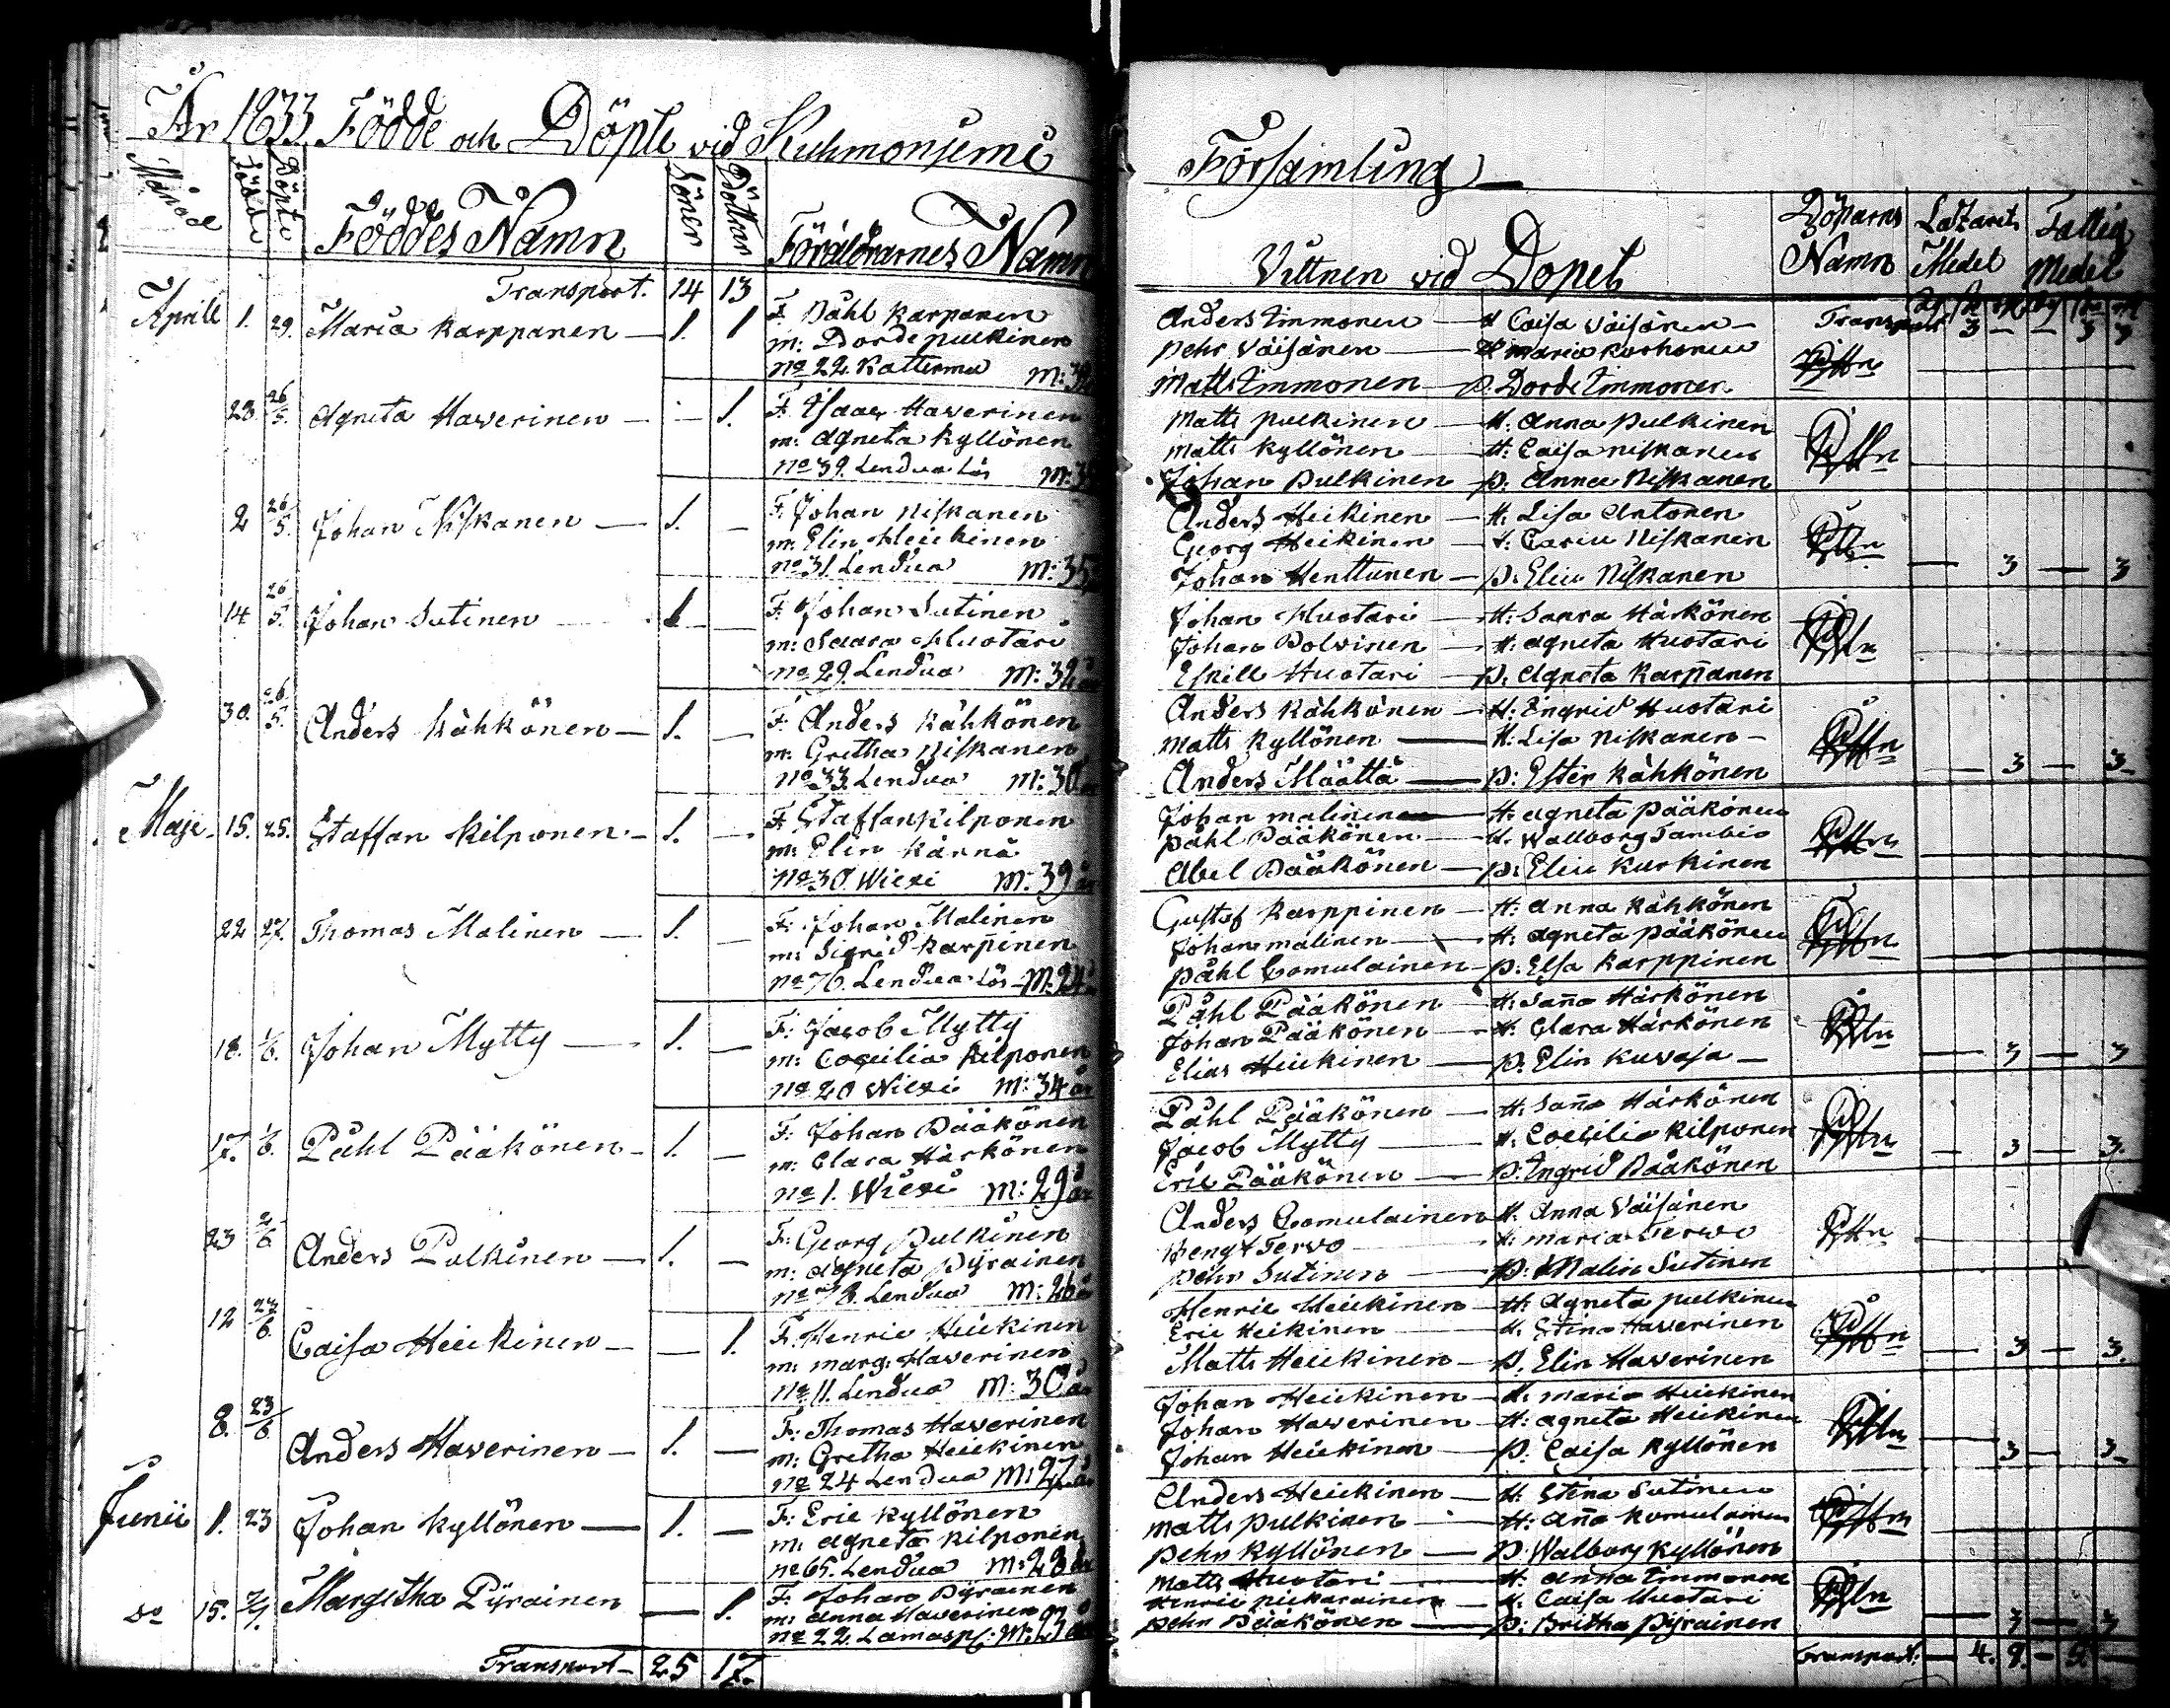 År 1833 Födde och Döpte vid Kuhmoniemi
Månad Född Döpte Föddes Namn Söner Döttrar Föräldrarnes Namn
Transport. 14 13
Aprill 1. 29. Maria Karppanen — 1. 1 F. Påhl Karpanen
m: Dorde pulkinen
No 22. Katterma M:
23. 26/5. Agneta Haverinen — 1. F. Isaac Haverinen
m: Agneta Kyllönen
No 39. Lendua Lös M:
2 26/5. Johan Niskanen — 1. — F: Johan Niskanen
m: Elin Heickinen
No 31. Lendua M: 35
14 26/5. Johan Sutinen 1 — F. Johan Sutinen
m: Saara Huotari
No 29. Lendua M: 32 år
30. 26/5. Anders Kähkönen — 1. — F. Anders Kähkönen
m: Gretha Niskanen
No 33. Lendua M: 30 år
Maji 15. 25. Staffan Kilponen — 1. — F. Staffan Kilponen
m: Elin Kärnä
No 30. Wiexi M: 39 år
22 27. Thomas Malinen — 1. — F: Johan Malinen
m: Sigrid Karpinen
No 76. Lendua Lös M: 24
18. 1/6. Johan Mytty — 1. — F: Jacob Mytty
m: Coecilia Kilponen
No 20 Wiexi M: 34 år
17. 1/6. Påhl Pääkönen — 1. — F: Johan Pääkönen
m: Clara Härkönen
No 1. Wiexi M: 29 år
23 2/6 Anders Pulkinen — 1. — F: Georg Pulkinen
m: Agneta Pyrainen
No 78. Lendua M: 26 å
12 23/6. Caisa Heickinen — — 1. F. Henric Heickinen
m: marg: Haverinen
No 11. Lendua M: 30 år
8. 23/6 Anders Haverinen — 1. — F: Thomas Haverinen
m: Gretha Heickinen
No 24 Lendua M: 27 år
Junii 1. 23 Johan Kyllönen — 1. — F: Eric Kyllönen
m: Agneta Kilponen
No 65. Lendua M: 28 år
do 15. 7/7. Margetha Pyrainen — 1. F. Johan Pyrainen
m: Anna Haverinen
No 22. Lamasp: M:
Transport — 25 17.
Församling
Vittnen vid Dopet Döparns Namn Lazarets Medel Fattig Medel
Anders Immonen — H Caisa Väisänen — Transport 3 — — 3 3
pehr Väisänen — H maria Korhonen
Matts Immonen — p. Dorde Immonen
Matts pulkinen — H. Anna pulkinen
matts Kyllönen — H: Caisa niskanen
Johan Pulkinen — p. Anna Niskanen
Anders Heikinen — H. Lisa Antonen
Georg Heikinen — H: Carin Niskanen
Johan Henttunen — p. Elin Niskanen — 3 — 3
Johan Huotari — H: Saara Härkönen
Johan Polvinen — H. Agneta Huotari
Eskill Huotari — p. Agneta Karpanen
Anders Kähkönen — H: Ingrid Huotari
Matts Kyllönen — H: Lisa Niskanen —
Anders Määttä — p: Ester Kähkönen — 3 — 3 —
Johan malinen — H. Agneta pääkönen
påhl Pääkönen — H. Wallborg
Abel Pääkönen — p: Elin Kurkinen
Gustaf Karppinen — H: Anna Kähkönen
Johan malinen — H. Agneta pääkönen
påhl Comulainen — p: Elsa Karppinen
Påhl Pääkönen — H: Sanna Härkönen
Johan Pääkönen — H. Clara Härkönen
Elias Heickinen — p. Elin Kuvaja — — 3 — 3
Påhl Pääkönen — H. Sanna Härkönen
Jacob Mytty — H. Coecilia Kilponen
Eric Pääkönen — p. Ingrid Pääkönen — 3 — 3.
Anders Comulainen H. Anna Väisänen
Bengt Tervo — H: maria Tervo
pehr Sutinen — p. Malin Sutinen
Henric Heickinen — H. Agneta pulkinen
Eric Heikinen — H. Stina Haverinen
Matts Heickinen — p. Elin Haverinen — 3 — 3.
Johan Heickinen — H. maria Heickinen
Johan Haverinen — H: Agneta Heickinen
Johan Heickinen — p. Caisa Kyllönen — 3 — 3 —
Anders Heickinen — H. Stina Sutinen
matts pulkinen — H: Anna Komulainen
pehr Kyllönen — p: Walborg Kyllönen
Matts Huotari — H. Anna Immonen
Henric piekarainen — H. Caisa Huotari
pehr Pääkönen — p: Britha Pyrainen — 3 — 3
Transport: — 4. 9.